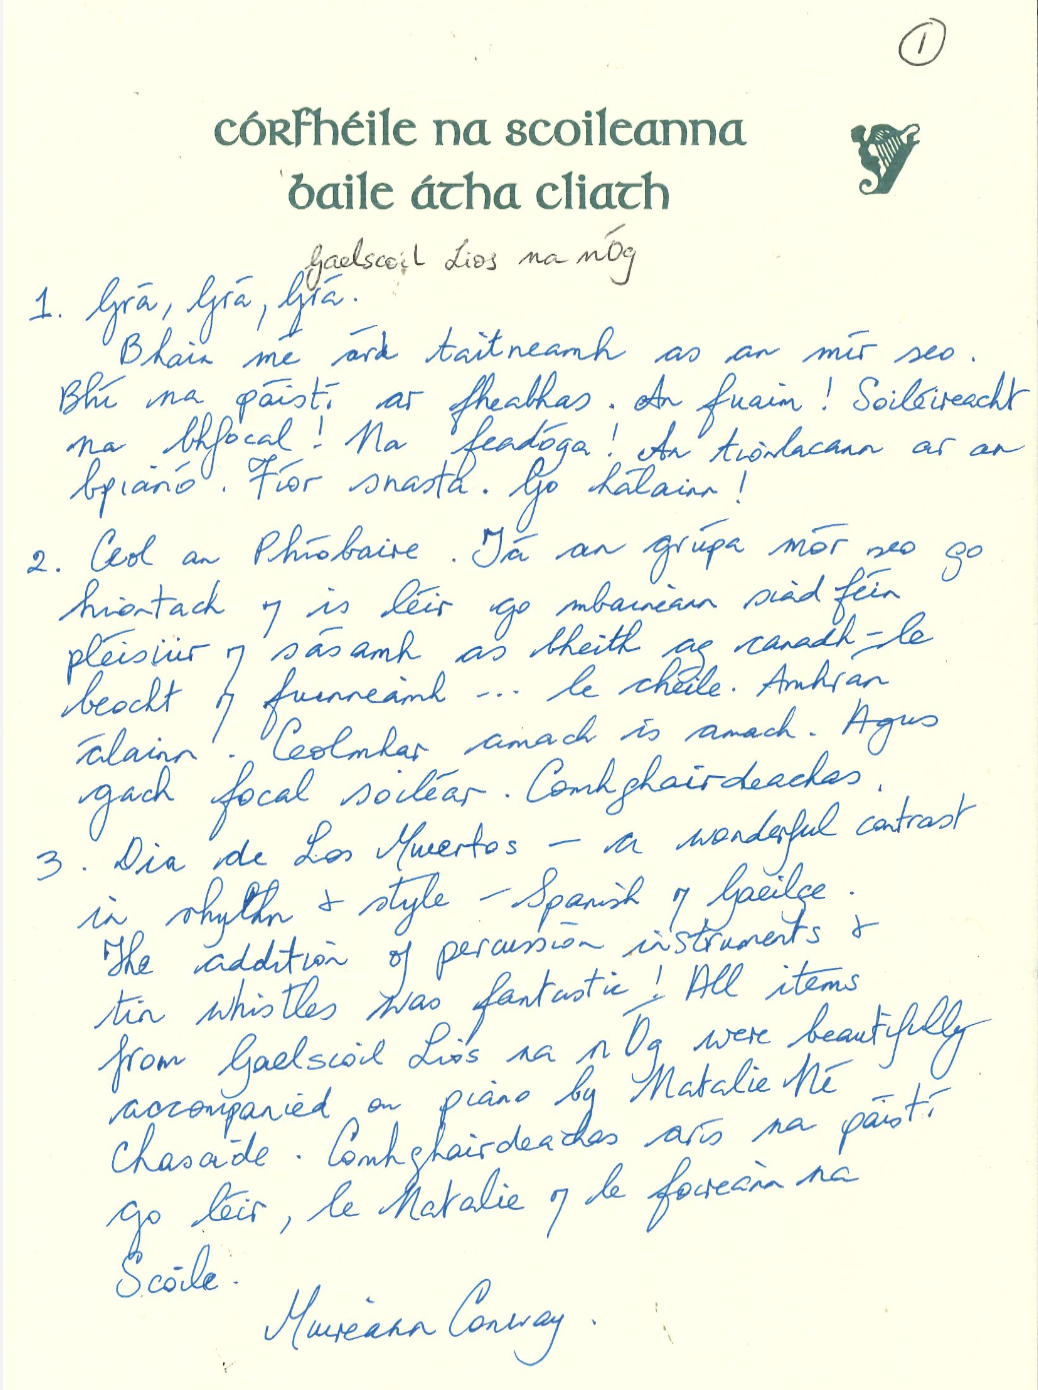 ①
córfhéile na scoileanna
baile átha cliath
Gaelscoil Lios na nÓg
1. Grá, Grá, Grá.
Bhain mé árd taitneamh as an mír seo.
Bhí na páistí ar fheabhas. An fuaim! Soiléireacht
na bhfocal! Na feadóga! An tionlacann ar an
bpianó. Fíor snasta. Go hálainn!
2. Ceol an Phíobaire. Tá an grúpa mór seo go
hiontach ⁊ is léir go mbaineann siad féin
pléisiúr ⁊ sásamh as bheith ag canadh - le
beocht ⁊ fuinneamh ... le chéile. Amhrán
álainn. Ceolmhar amach is amach. Agus
gach focal soiléar. Comhghairdeachas.
3. Dia de Los Muertos - a wonderful contrast
in rhythm & style - Spanish ⁊ Gaeilge.
The addition of percussion instruments &
tin whistles was fantastic! All items
from Gaelscoil Lios na nÓg were beautifully
accompanied on piano by Natalie Ní
Chasaide. Comhghairdeachas arís na páistí
go léir, le Natalie ⁊ le foireann na
Scoile.
Muireann Conway.